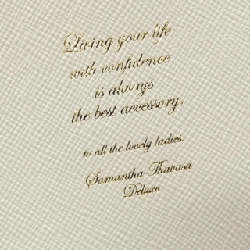 Living your life
with confidence
is always
the best accessory.
to all the lovely ladies.
Samantha Thavasa
Deluxe